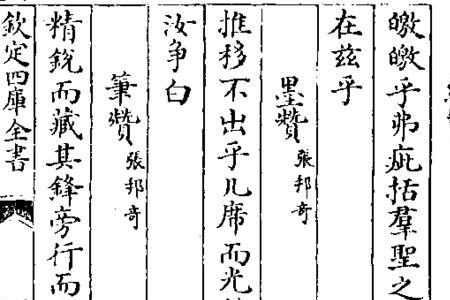 皦皦乎弗疵括羣聖之
在兹乎
墨贊張邦奇
推移不出乎几席而光
汝争白
筆贊張邦奇
精銳而藏其鋒旁行而
欽定四庫全書